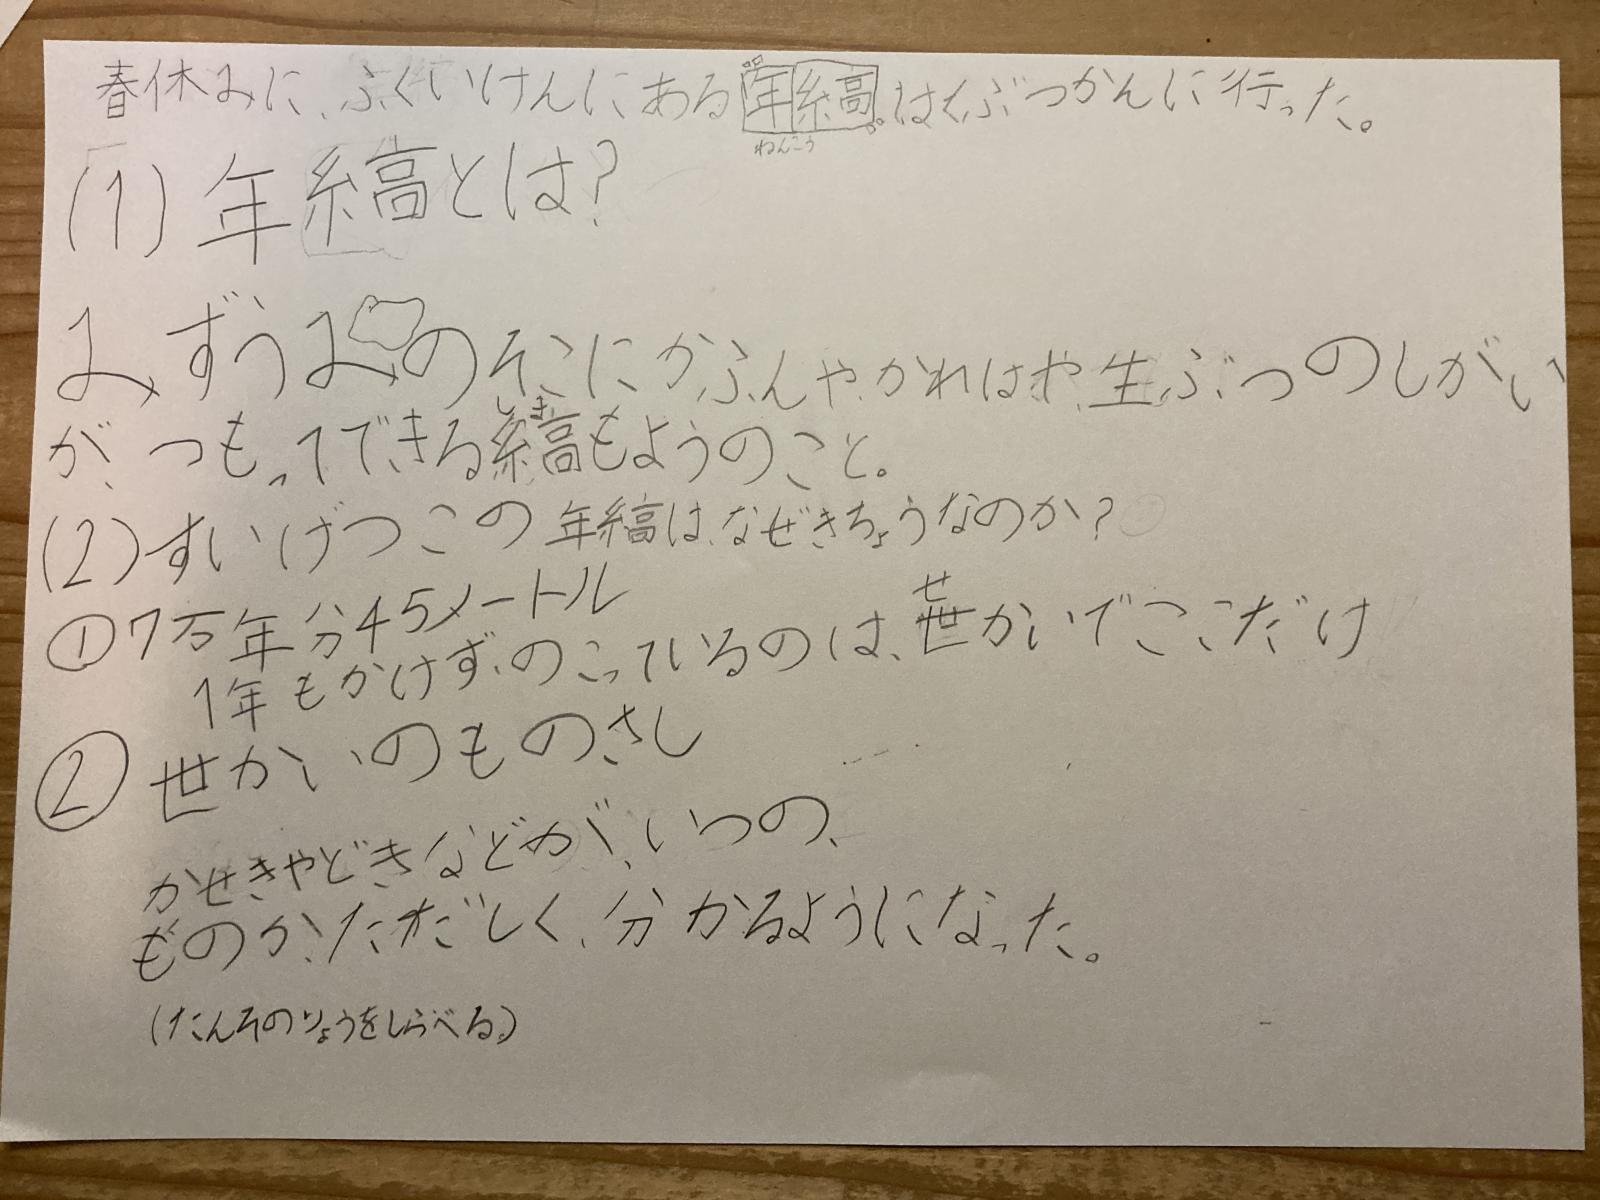 春休みに、ふくいけんにある年縞はくぶつかんに行った。
ねんこう
(1)年縞とは?
みずうみのそこにかふんや、かれはや、生ぶつのしがい
が、つもってできる縞もようのこと。
しま
(2)すいげつこの年縞は、なぜきちょうなのか?
①7万年分45メートル
1年もかけず、のこっているのは、世かいでここだけ
せ
②世かいのものさし
かせきやどきなどが、いつの、
ものか、ただしく、分かるようになった。
(たんそのりょうをしらべる。)